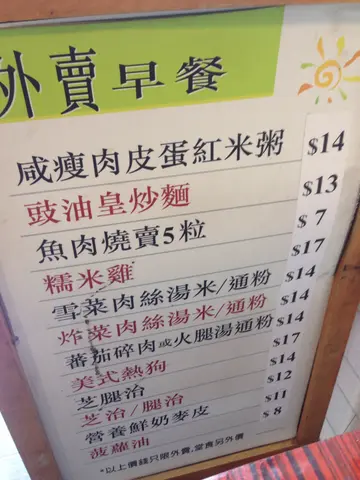 外賣早餐
咸瘦肉皮蛋紅米粥 $14
豉油皇炒麵 $13
魚肉燒賣5粒 $7
糯米雞 $17
雪菜肉絲湯米/通粉 $14
炸菜肉絲湯米/通粉 $14
蕃茄碎肉或火腿湯通粉 $14
美式熱狗 $17
芝腿治 $14
芝治/腿治 $12
營養鮮奶麥皮 $11
菠蘿油 $8
*以上價錢只限外賣,堂食另外價